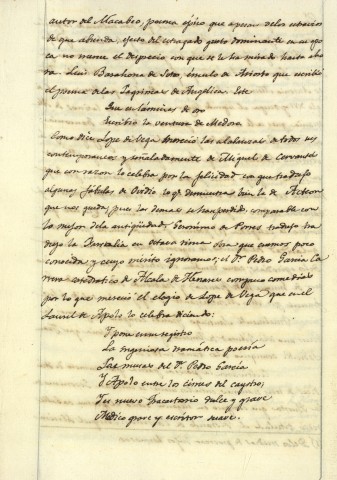 autor del Macabeo, poema epico que apesar de los estravios
de que abunda, efecto del estragado gusto dominante en su epo
ca no merece el desprecio con que se le ha mirado hasta aho
ra. Luis Barahona de Soto, émulo de Ariosto que escribió
el poema de las Lagrimas de Angelica. Este
Que en láminas de oro
Escribio la ventura de Medoro
Como dice Lope de Vega mereció las alabanzas de todos sus
contemporaneos y señaladamente de Miguel de Cervantes
que con razon le celebra por la felicidad con que tradujo
algunas fábulas de Ovidio lo qe demuestra bien la de Acteon
que nos queda, pues las demas se han perdido, comparable con
lo mejor de la antigüedad. Geronimo de Porres tradujo
la Farsalia en octava rima obra que creemos poco
conocida y cuyo mérito ignoramos; el Dr. Pedro Garcia Ca
rrero catedratico de Alcala de Henares compuso comedias
por lo que mereció el elogio de Lope de Vega que en el
Laurel de Apolo lo celebra diciendo:
Y pone en su registro
La ingeniosa dramática poesia
Las musas del Dr. Pedro Garcia
Y Apolo entre los cisnes del caystro,
Por nuevo
dulce y grave
Médico grave y escritor suave.